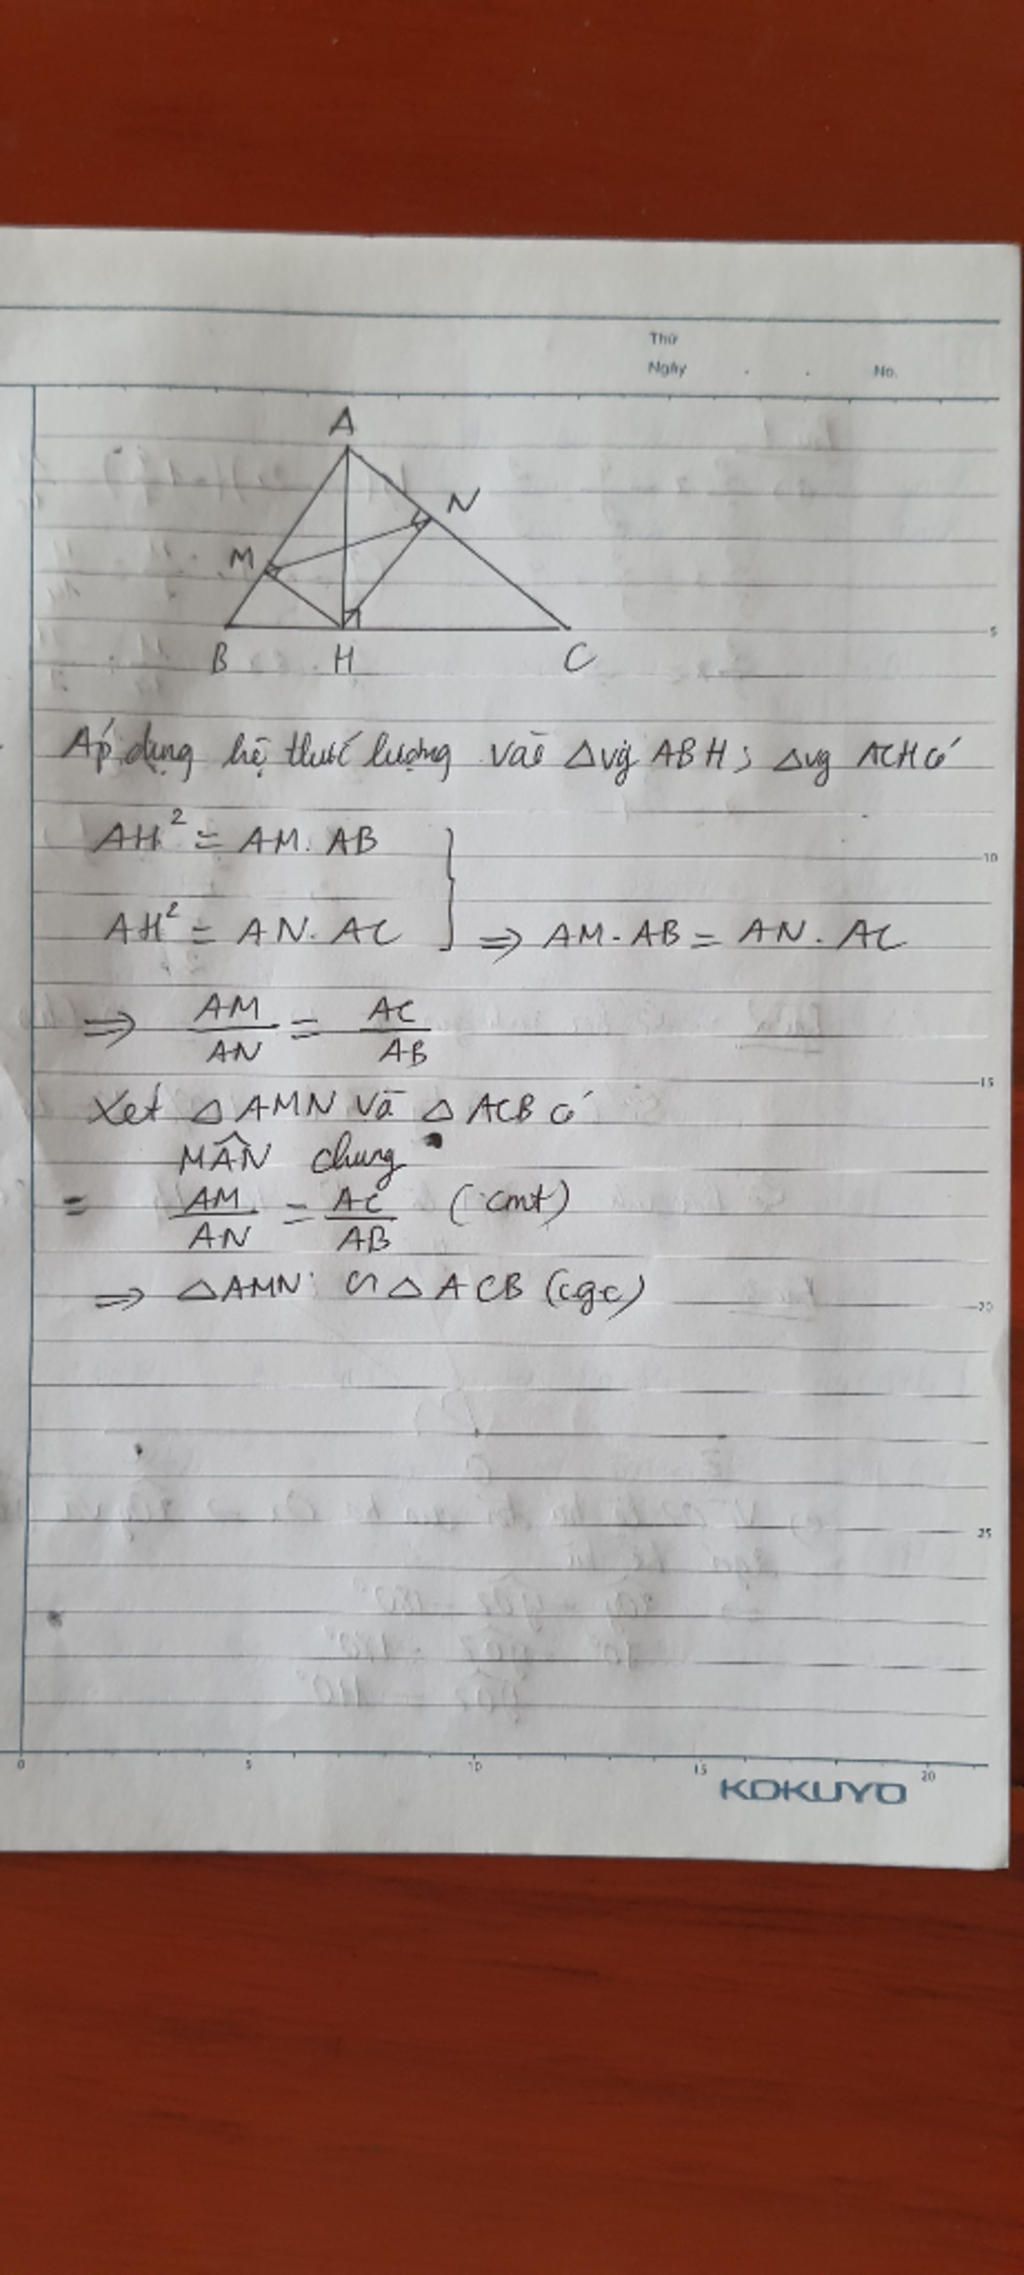 Thứ
Ngày . . No.
A
N
M
B H C
Áp dụng hệ thức lượng vào Δvg ABH; Δvg ACH có
AH² = AM. AB
AH² = AN. AC ⇒ AM. AB = AN. AC
⇒ AM/AN = AC/AB
Xét Δ AMN và Δ ACB có
MÂN chung
= AM/AN = AC/AB (cmt)
⇒ ΔAMN ∽ Δ ACB (cgc)
5
10
15
20
25
0 5 10 15 20
KOKUYO